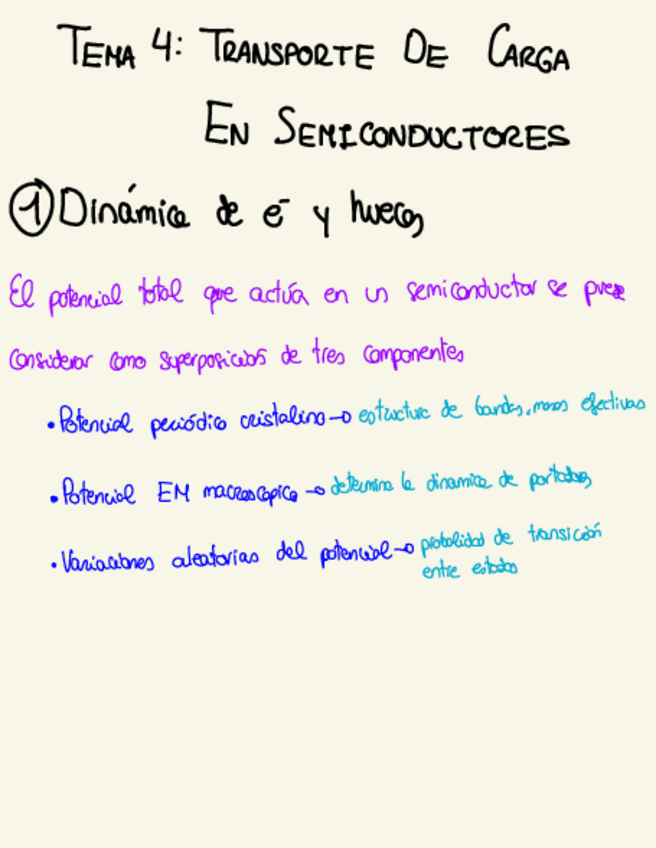 TEMA 4: TRANSPORTE DE CARGA
EN SEMICONDUCTORES
① Dinámica de e⁻ y huecos
El potencial total que actúa en un semiconductor se puede
considerar como superposición de tres componentes
• Potencial periódico cristalino → estructura de bandas, masas efectivas
• Potencial EM macroscópico → determina la dinámica de portadores
• Variaciones aleatorias del potencial → probalidad de transición
entre estados